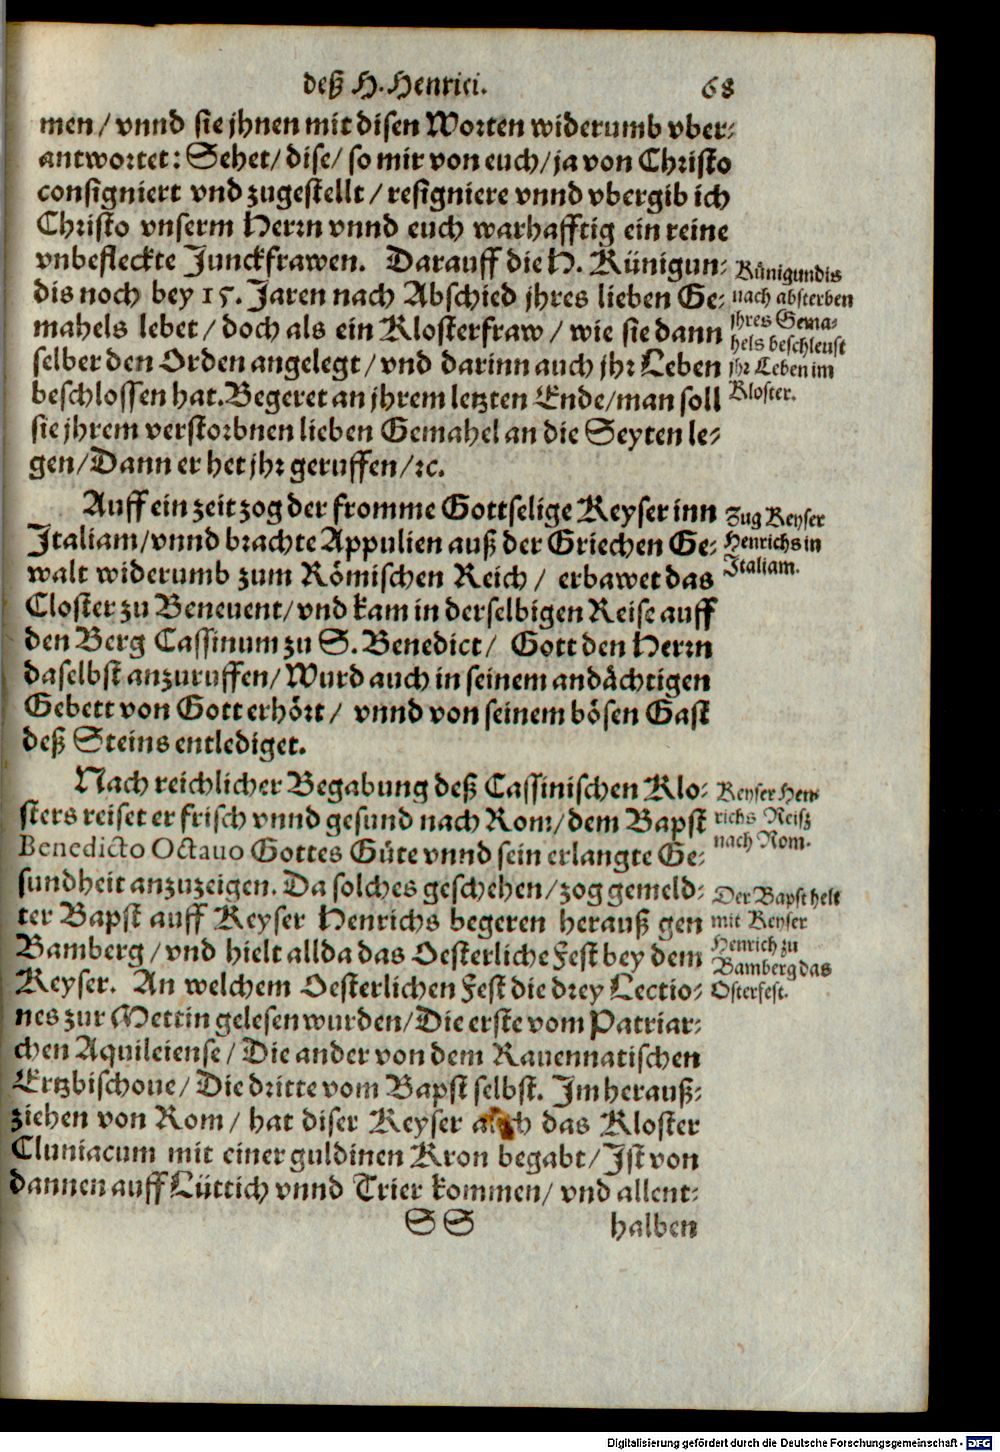 deß H. Henrici. 68
men/ vnnd sie jhnen mit disen Worten widerumb vber-
antwortet: Sehet/ dise/ so mir von euch/ ja von Christo
consigniert vnd zugestellt/ resigniere vnnd vbergib ich
Christo vnserm Herrn vnnd euch warhafftig ein reine
vnbefleckte Junckfrawen. Darauff die H. Künigun-
dis noch bey 15. Jaren nach Abschied jhres lieben Ge-
mahels lebet/ doch als ein Klosterfraw/ wie sie dann
selber den Orden angelegt/ vnd darinn auch jhr Leben
beschlossen hat. Begeret an jhrem letzten Ende/ man soll
sie jhrem verstorbnen lieben Gemahel an die Seyten le-
gen/ Dann er het jhr geruffen/ ꝛc.
Künigundis
nach absterben
jhres Gema-
hels beschleust
jhr Leben im
Kloster.
Auff ein zeit zog der fromme Gottselige Keyser inn
Italiam/ vnnd brachte Appulien auß der Griechen Ge-
walt widerumb zum Römischen Reich/ erbawet das
Closter zu Beneuent/ vnd kam in derselbigen Reise auff
den Berg Cassinum zu S. Benedict/ Gott den Herrn
daselbst anzuruffen/ Wurd auch in seinem andächtigen
Gebett von Gott erhört/ vnnd von seinem bösen Gast
deß Steins entlediget.
Zug Keyser
Henrichs in
Italiam.
Nach reichlicher Begabung deß Cassinischen Klo-
sters reiset er frisch vnnd gesund nach Rom/ dem Bapst
Benedicto Octauo Gottes Güte vnnd sein erlangte Ge-
sundheit anzuzeigen. Da solches geschehen/ zog gemeld-
ter Bapst auff Keyser Henrichs begeren herauß gen
Bamberg/ vnd hielt allda das Oesterliche Fest bey dem
Keyser. An welchem Oesterlichen Fest die drey Lectio-
nes zur Mettin gelesen wurden/ Die erste vom Patriar-
chen Aquileiense/ Die ander von dem Rauennatischen
Ertzbischoue/ Die dritte vom Bapst selbst. Im herauß-
ziehen von Rom/ hat diser Keyser auch das Kloster
Cluniacum mit einer guldinen Kron begabt/ Ist von
dannen auff Lüttich vnnd Trier kommen/ vnd allent-
Keyser Hen
richs Reiß
nach Rom.
Der Bapst helt
mit Keyser
Henrich zu
Bamberg das
Osterfest.
SS halben
Digitalisierung gefördert durch die Deutsche Forschungsgemeinschaft - DFG